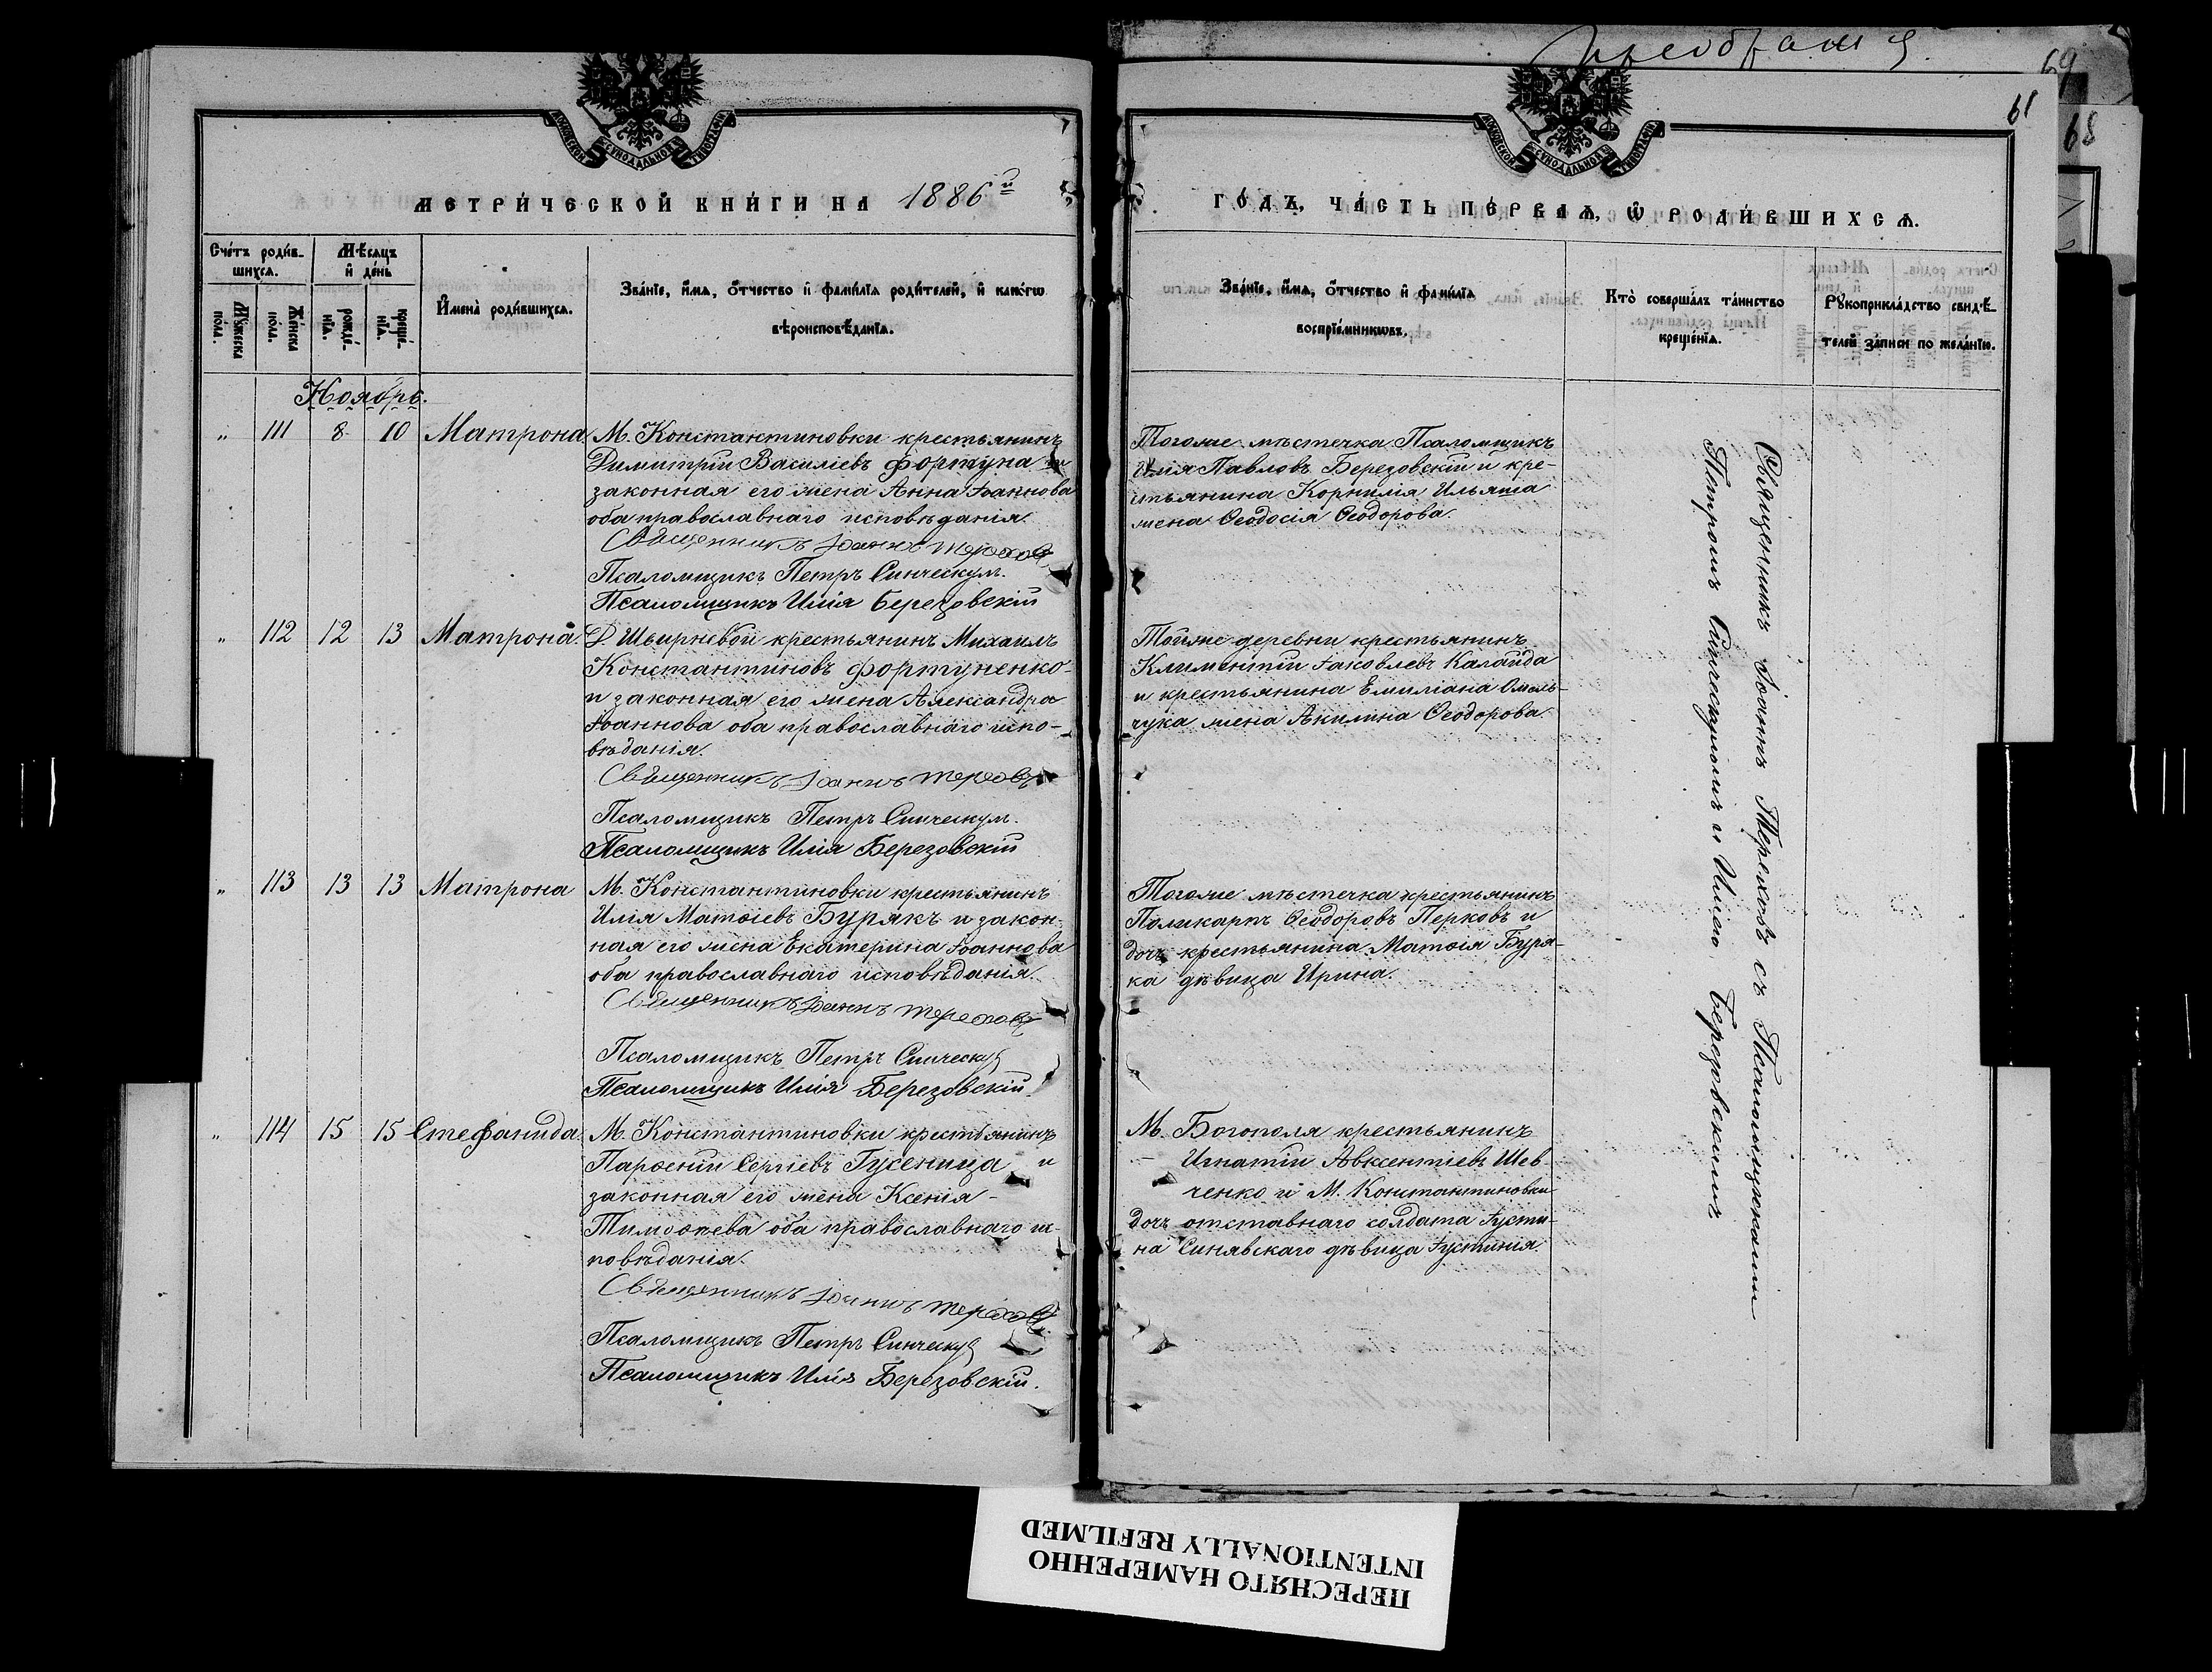 Преображ
69
61
68
МОСКОВСКОЙ СѴНОДАЛЬНОЙ ТИПОГРАФІИ
МОСКОВСКОЙ СѴНОДАЛЬНОЙ ТИПОГРАФІИ
МЕТРИ́ЧЕСКОЙ КНИ́ГИ НА 1886й
ГО́ДЪ, ЧА́СТЬ ПЕ́РВАѦ, Ѡ РОДИ́ВШИХСѦ.
Сче́тъ роди́в-
шихсѧ.
Мꙋжеска по́ла.
Же́нска по́ла.
Мѣ́сѧцъ
и де́нь
рожде́-
нїѧ.
креще́-
нїѧ.
И҆мена̀ роди́вшихсѧ.
Зва́нїе, и҆́мѧ, ѻ҆́тчество и҆ фамѝлїѧ роди́телей, и҆ како́гѡ
вѣроисповѣ́данїѧ.
Зва́нїе, и҆́мѧ, ѻ҆́тчество и҆ фамѝлїѧ
воспрїе́мникѡвъ.
Кто̀ соверша́лъ та́инство
креще́нїѧ.
Рꙋкоприкла́дство свидѣ́-
телей за́писи по жела́нїю.
Ноябрь.
" 111 8 10 Матрона
М. Константиновки крестьянинъ
Димитрій Василіевъ Фортуна и
законная его жена Анна Іоаннова
оба православнаго исповѣданія.
Священникъ Іоаннъ Тереховъ
Псаломщикъ Петръ Синческул.
Псаломщикъ Илія Березовскій
Тогоже мѣстечка Псаломщикъ
Илія Павловъ Березовскій и кре-
стьянина Корнилія Ильяша
жена Ѳеодосія Ѳеодорова.
" 112 12 13 Матрона.
Д Швырневой крестьянинъ Михаилъ
Константиновъ Фортуненко
и законная его жена Александра
Іоаннова оба православнаго испо-
вѣданія.
Священникъ Іоаннъ Тереховъ
Псаломщикъ Петръ Синческул.
Псаломщикъ Илія Березовскій
Тойже деревни крестьянинъ
Климентій Іаковлевъ Калайда
и крестьянина Емиліана Омель-
чука жена Акилина Ѳеодорова.
" 113 13 13 Матрона
М. Константиновки крестьянинъ
Илія Матѳіевъ Бурякъ и закон-
ная его жена Екатерина Іоаннова
оба православнаго исповѣданія.
Священникъ Іоаннъ Тереховъ
Псаломщикъ Петръ Синческул
Псаломщикъ Илія Березовскій.
Тогоже мѣстечка крестьянинъ
Поликарпъ Ѳеодоровъ Перковъ и
дочь крестьянина Матѳія Буря-
ка дѣвица Ирина.
" 114 15 15 Стефанида.
М. Константиновки крестьянинъ
Парѳеній Сергіевъ Гусеница и
законная его жена Ксенія
Тимоѳеева оба православнаго ис-
повѣданія.
Священникъ Іоаннъ Тереховъ
Псаломщикъ Петръ Синческул
Псаломщикъ Илія Березовскій.
М. Богополя крестьянинъ
Игнатій Авксентіевъ Шев-
ченко и М. Константиновки
дочь отставнаго солдата Іусти-
на Синявскаго дѣвица Іустинія.
Священникъ Іоаннъ Тереховъ съ Псаломщиками
Петромъ Синческуломъ и Иліею Березовскимъ
ПЕРЕСНЯТО НАМЕРЕННО
INTENTIONALLY REFILMED